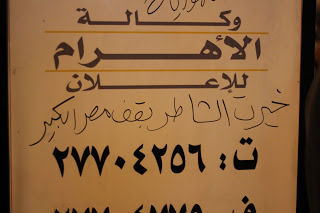 وكالة
الأهرام
للإعلان
خيرت الشاطر يقف مصر الكبير
ت: ٢٧٧٠٤٢٥٦